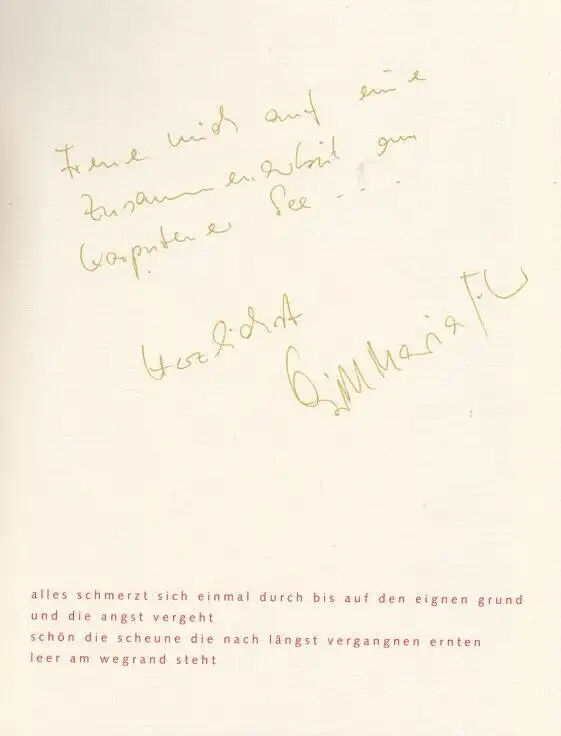 Freue mich auf eine
Zusammenarbeit am
See - ! .
Herzlichst
Maria
alles schmerzt sich einmal durch bis auf den eignen grund
und die angst vergeht
schön die scheune die nach längst vergangnen ernten
leer am wegrand steht